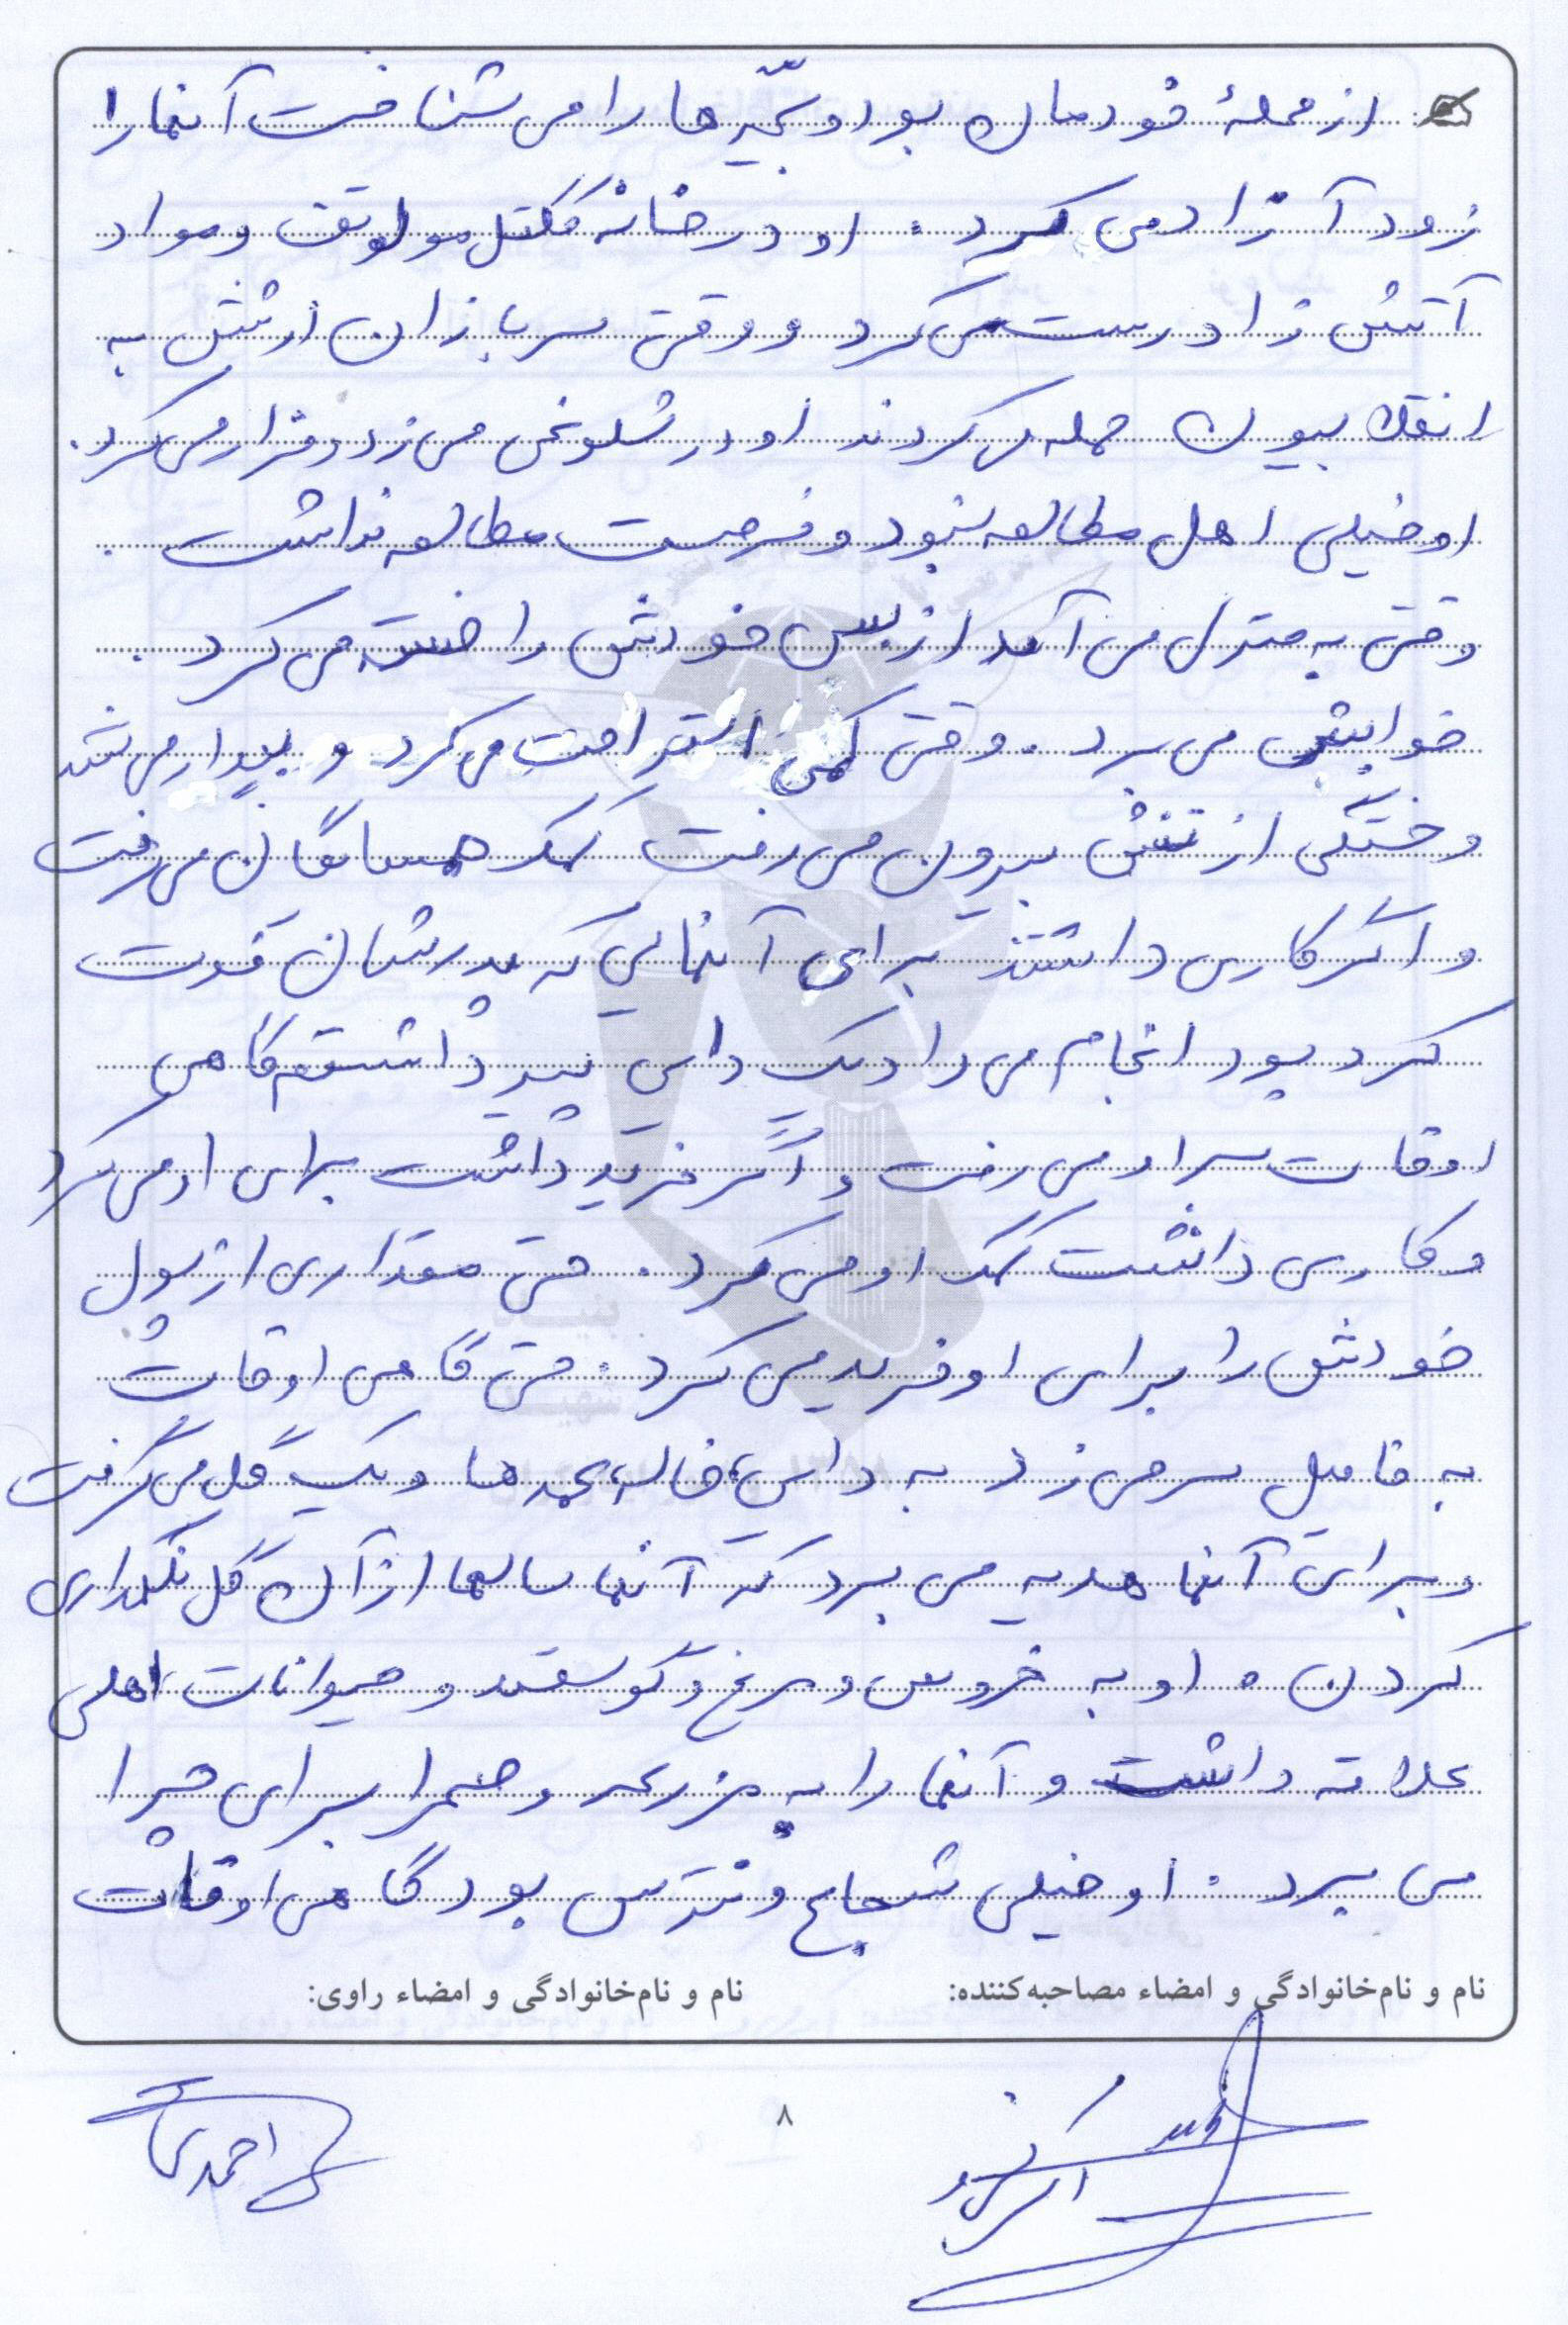 از محلهٔ خودمان بود و بچّه‌ها را می شناخت آنها را
زود آزاد می کرد. او در خانه کُکتل مولوتف و مواد
آتش زا درست می کرد و وقتی سربازان ارتش به
انقلابیون حمله می کردند او در شلوغی می زد و فرار می کرد.
او خیلی اهل مطالعه نبود و فرصت مطالعه نداشت.
وقتی به منزل می آمد از بس خودش را خسته می کرد.
خوابش می برد. وقتی کمی استراحت می کرد و بیدار می شد
و خستگی از تنش بیرون می رفت کمک همسایگان می رفت
و اگر کاری داشتند برای آنهایی که پدرشان فوت
کرده بود انجام می داد یک دایی پیر داشتم گاهی
اوقات سر او می رفت و اگر خرید داشت برای او می کرد
و کاری داشت کمک او می کرد. حتی مقداری از پول
خودش را برای او خرید می کرد. حتی گاهی اوقات
به فامیل سر می زد به دایی، خاله، ها و یک گل می گرفت
و برای آنها هدیه می برد که آنها سالها از آن گل نگهداری
کردن. او به خروس و مرغ و گوسفند و حیوانات اهلی
علاقه داشت و آنها را به مزرعه و صحرا برای چرا
می برد. او خیلی شجاع و نترس بود گاهی اوقات
نام و نام‌خانوادگی و امضاء مصاحبه‌کننده:
نام و نام‌خانوادگی و امضاء راوی:
احمدی
۸
بنیاد
شهید